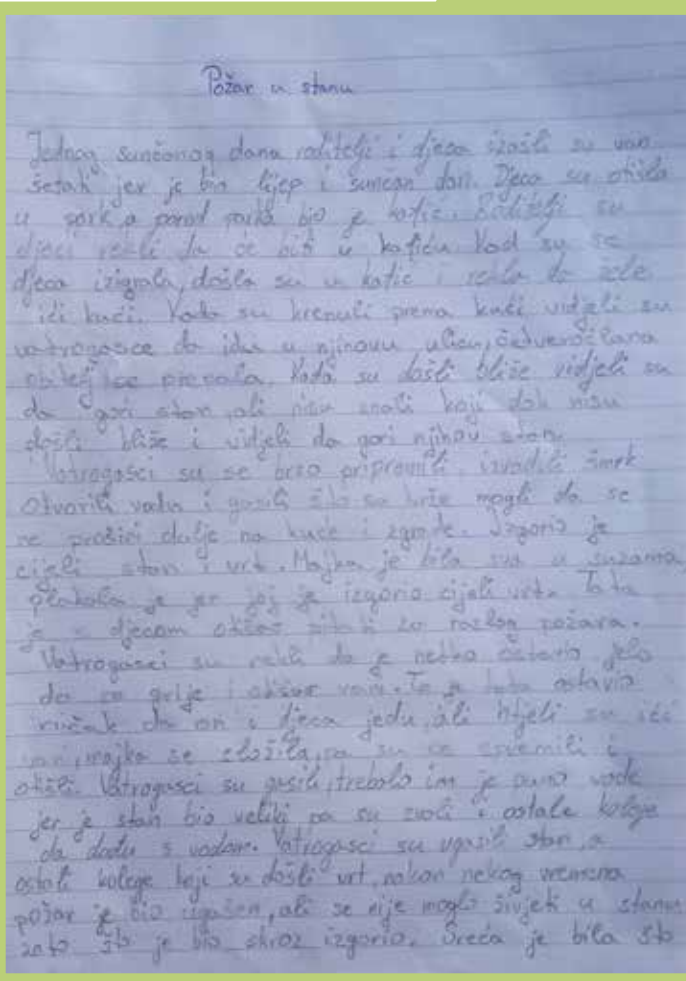 Požar u stanu
Jednog sunčanog dana roditelji i djeca izašli su van
šetati jer je bio lijep i sunčan dan. Djeca su otišla
u park, a pored parka bio je kafić. Roditelji su
djeci rekli da će biti u kafiću. Kad su se
djeca izigrala, došla su u kafić i rekla da žele
ići kući. Kada su krenuli prema kući vidjeli su
vatrogasce da idu u njihovu ulicu, četveročlana
obitelj se prepala. Kada su došli bliže vidjeli su
da gori stan, ali nisu znali koji dok nisu
došli bliže i vidjeli da gori njihov stan.
Vatrogasci su se brzo pripremili, izvadili šmrk
otvorili vodu i gasili što su brže mogli da se
ne proširi dalje na kuće i zgrade. Izgorio je
cijeli stan i vrt. Majka je bila sva u suzama,
plakala je jer joj je izgorio cijeli vrt. Tata
je s djecom otišao pitati za razlog požara.
Vatrogasci su rekli da je netko ostavio jelo
da se grije i otišao van. To je tata ostavio
ručak da on i djeca jedu, ali htjeli su ići
van, majka se složila, pa su se spremili i
otišli. Vatrogasci su gasili, trebalo im je puno vode
jer je stan bio veliki pa su zvali i ostale kolege
da dođu s vodom. Vatrogasci su ugasili stan, a
ostali kolege koji su došli vrt, nakon nekog vremena
požar je bio ugašen, ali se nije moglo živjeti u stanu
zato što je bio skroz izgorio. Sreća je bila što